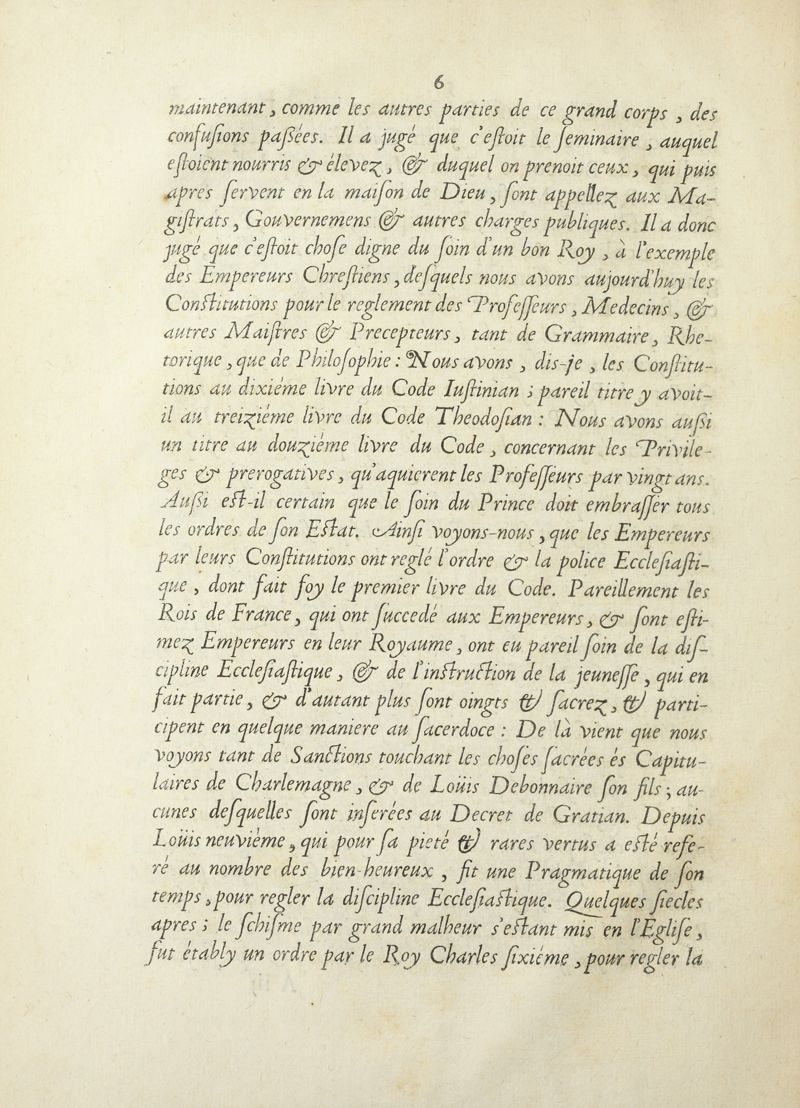 6
maintenant, comme les autres parties de ce grand corps, des
confuſions paſſées. Il a jugé que c'eſtoit le ſeminaire, auquel
eſtoient nourris & élevez, & duquel on prenoit ceux, qui puis
apres ſervent en la maiſon de Dieu, ſont appellez aux Ma-
giſtrats, Gouvernemens & autres charges publiques. Il a donc
jugé que c'eſtoit choſe digne du ſoin d'un bon Roy, à l'exemple
des Empereurs Chreſtiens, deſquels nous avons aujourd'huy les
Conſtitutions pour le reglement des Profeſſeurs, Medecins, &
autres Maiſtres & Precepteurs, tant de Grammaire, Rhe-
torique, que de Philoſophie : Nous avons, dis-je, les Conſtitu-
tions au dixiéme livre du Code Iuſtinian ; pareil titre y avoit-
il au treiziéme livre du Code Theodoſian : Nous avons auſſi
un titre au douziéme livre du Code, concernant les Privile-
ges & prerogatives, qu'aquierent les Profeſſeurs par vingt ans.
Auſſi eſt-il certain que le ſoin du Prince doit embraſſer tous
les ordres de ſon Eſtat. Ainſi voyons-nous, que les Empereurs
par leurs Conſtitutions ont reglé l'ordre & la police Eccleſiaſti-
que, dont fait foy le premier livre du Code. Pareillement les
Rois de France, qui ont ſuccedé aux Empereurs, & ſont eſti-
mez Empereurs en leur Royaume, ont eu pareil ſoin de la diſ-
cipline Eccleſiaſtique, & de l'inſtruction de la jeuneſſe, qui en
fait partie, & d'autant plus ſont oingts & ſacrez, & parti-
cipent en quelque maniere au ſacerdoce : De là vient que nous
voyons tant de Sanctions touchant les choſes ſacrées és Capitu-
laires de Charlemagne, & de Loüis Debonnaire ſon fils ; au-
cunes deſquelles ſont inſerées au Decret de Gratian. Depuis
Loüis neuviéme, qui pour ſa pieté & rares vertus a eſté refe-
ré au nombre des bien-heureux, fit une Pragmatique de ſon
temps, pour regler la diſcipline Eccleſiaſtique. Quelques ſiecles
apres ; le ſchiſme par grand malheur s'eſtant mis en l'Egliſe,
fut étably un ordre par le Roy Charles ſixiéme, pour regler la